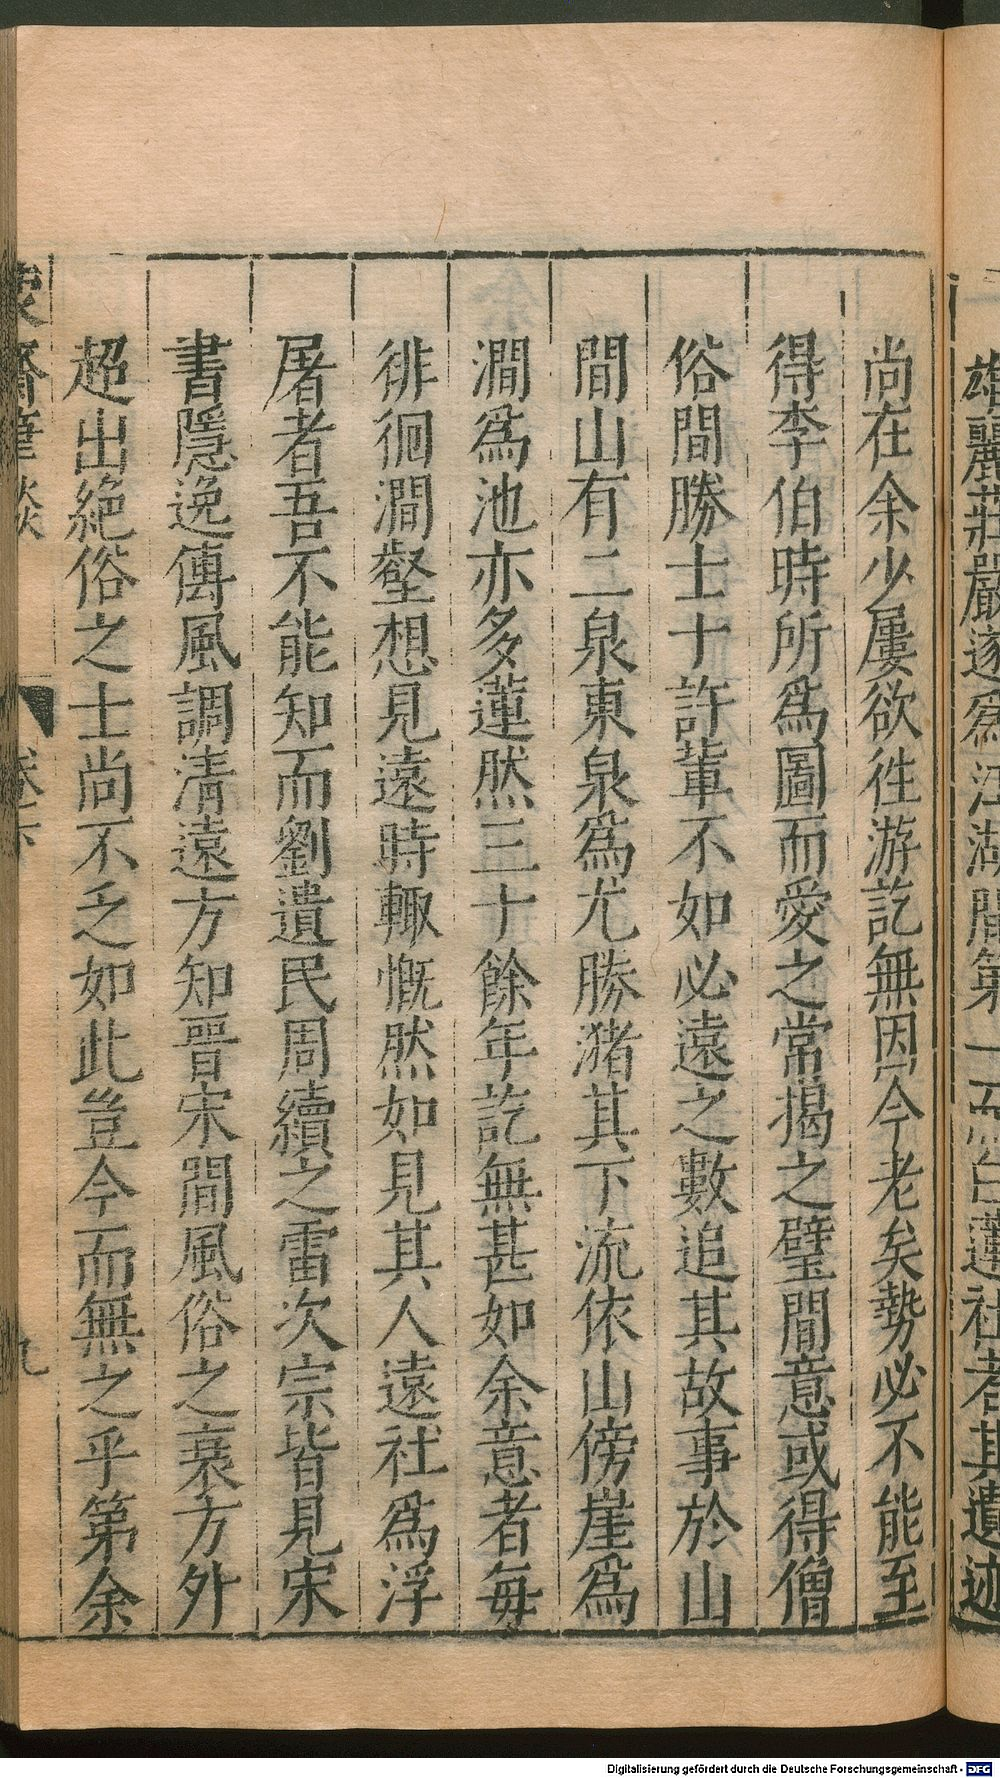 雄麗莊嚴遂爲江湖間第一
白蓮社者其遺迹
尚在余少屢欲徃游訖無因今老矣勢必不能至
得李伯時所爲圖而愛之常揭之壁間意或得僧
俗間勝士十許軰不如必遠之數追其故事於山
間山有二泉東泉爲尤勝潴其下流依山傍崖爲
澗爲池亦多蓮然三十餘年訖無甚如余意者每
徘徊澗壑想見遠時輙慨然如見其人遠社爲浮
屠者吾不能知而劉遺民周續之雷次宗皆見宋
書隱逸傳風調清遠方知晋宋間風俗之衰方外
超出絶俗之士尚不乏如此豈今而無之乎第余
蒙齋筆談
卷下
九
Digitalisierung gefördert durch die Deutsche Forschungsgemeinschaft - DFG